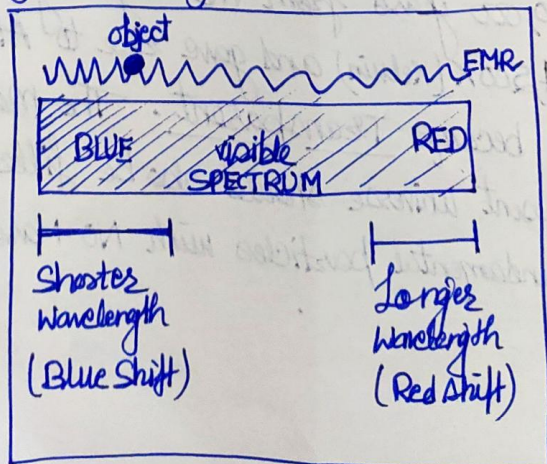 object
EMR
BLUE visible RED
SPECTRUM
Shorter
Wavelength
(Blue Shift)
Longer
Wavelength
(Red Shift)